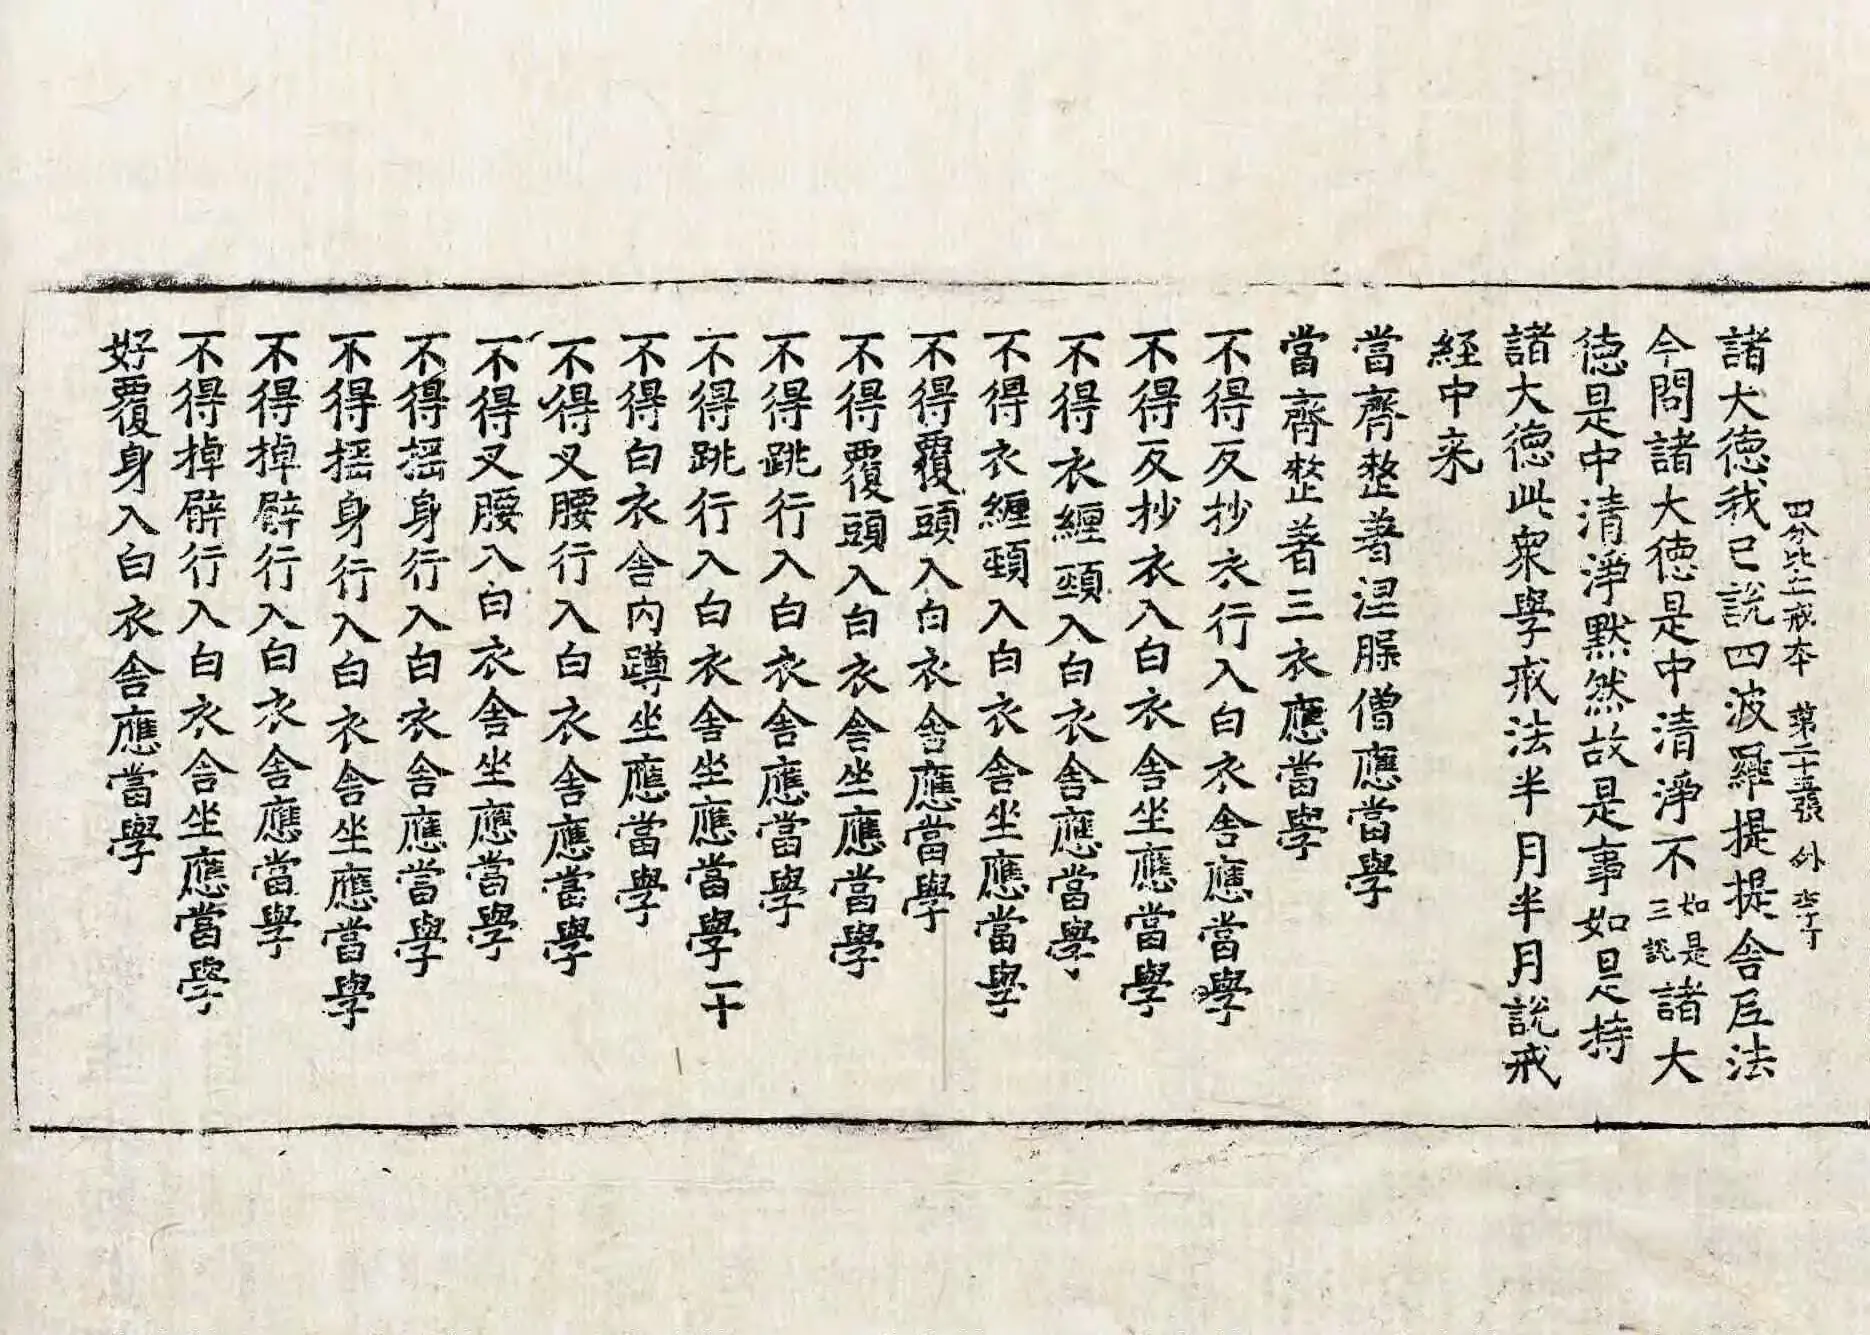 四分比丘戒本　第二十五張　外　李丁
諸大德我已說四波羅提提舍尼法
今問諸大德是中清淨不如是三說諸大
德是中清淨默然故是事如是持
諸大德此衆學戒法半月半月說戒
經中来
當齊整著涅槃僧應當學
當齊整著三衣應當學
不得反抄衣行入白衣舍應當學
不得反抄衣入白衣舍坐應當學
不得衣纏頸入白衣舍應當學
不得衣纏頸入白衣舍坐應當學
不得覆頭入白衣舍應當學
不得覆頭入白衣舍坐應當學
不得跳行入白衣舍應當學
不得跳行入白衣舍坐應當學一十
不得白衣舍内蹲坐應當學
不得叉腰行入白衣舍應當學
不得叉腰入白衣舍坐應當學
不得揺身行入白衣舍應當學
不得揺身行入白衣舍坐應當學
不得掉臂行入白衣舍應當學
不得掉臂行入白衣舍坐應當學
好覆身入白衣舍應當學